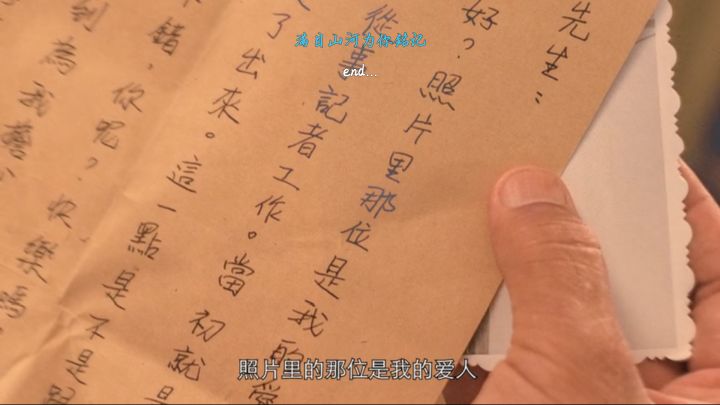 满目山河为你铭记
end...
先生：
好？照片里那位是我的愛
從事記者工作。當初就是
了出來。這一點是不是
錯，你呢？快樂嗎
到為我
照片里的那位是我的爱人